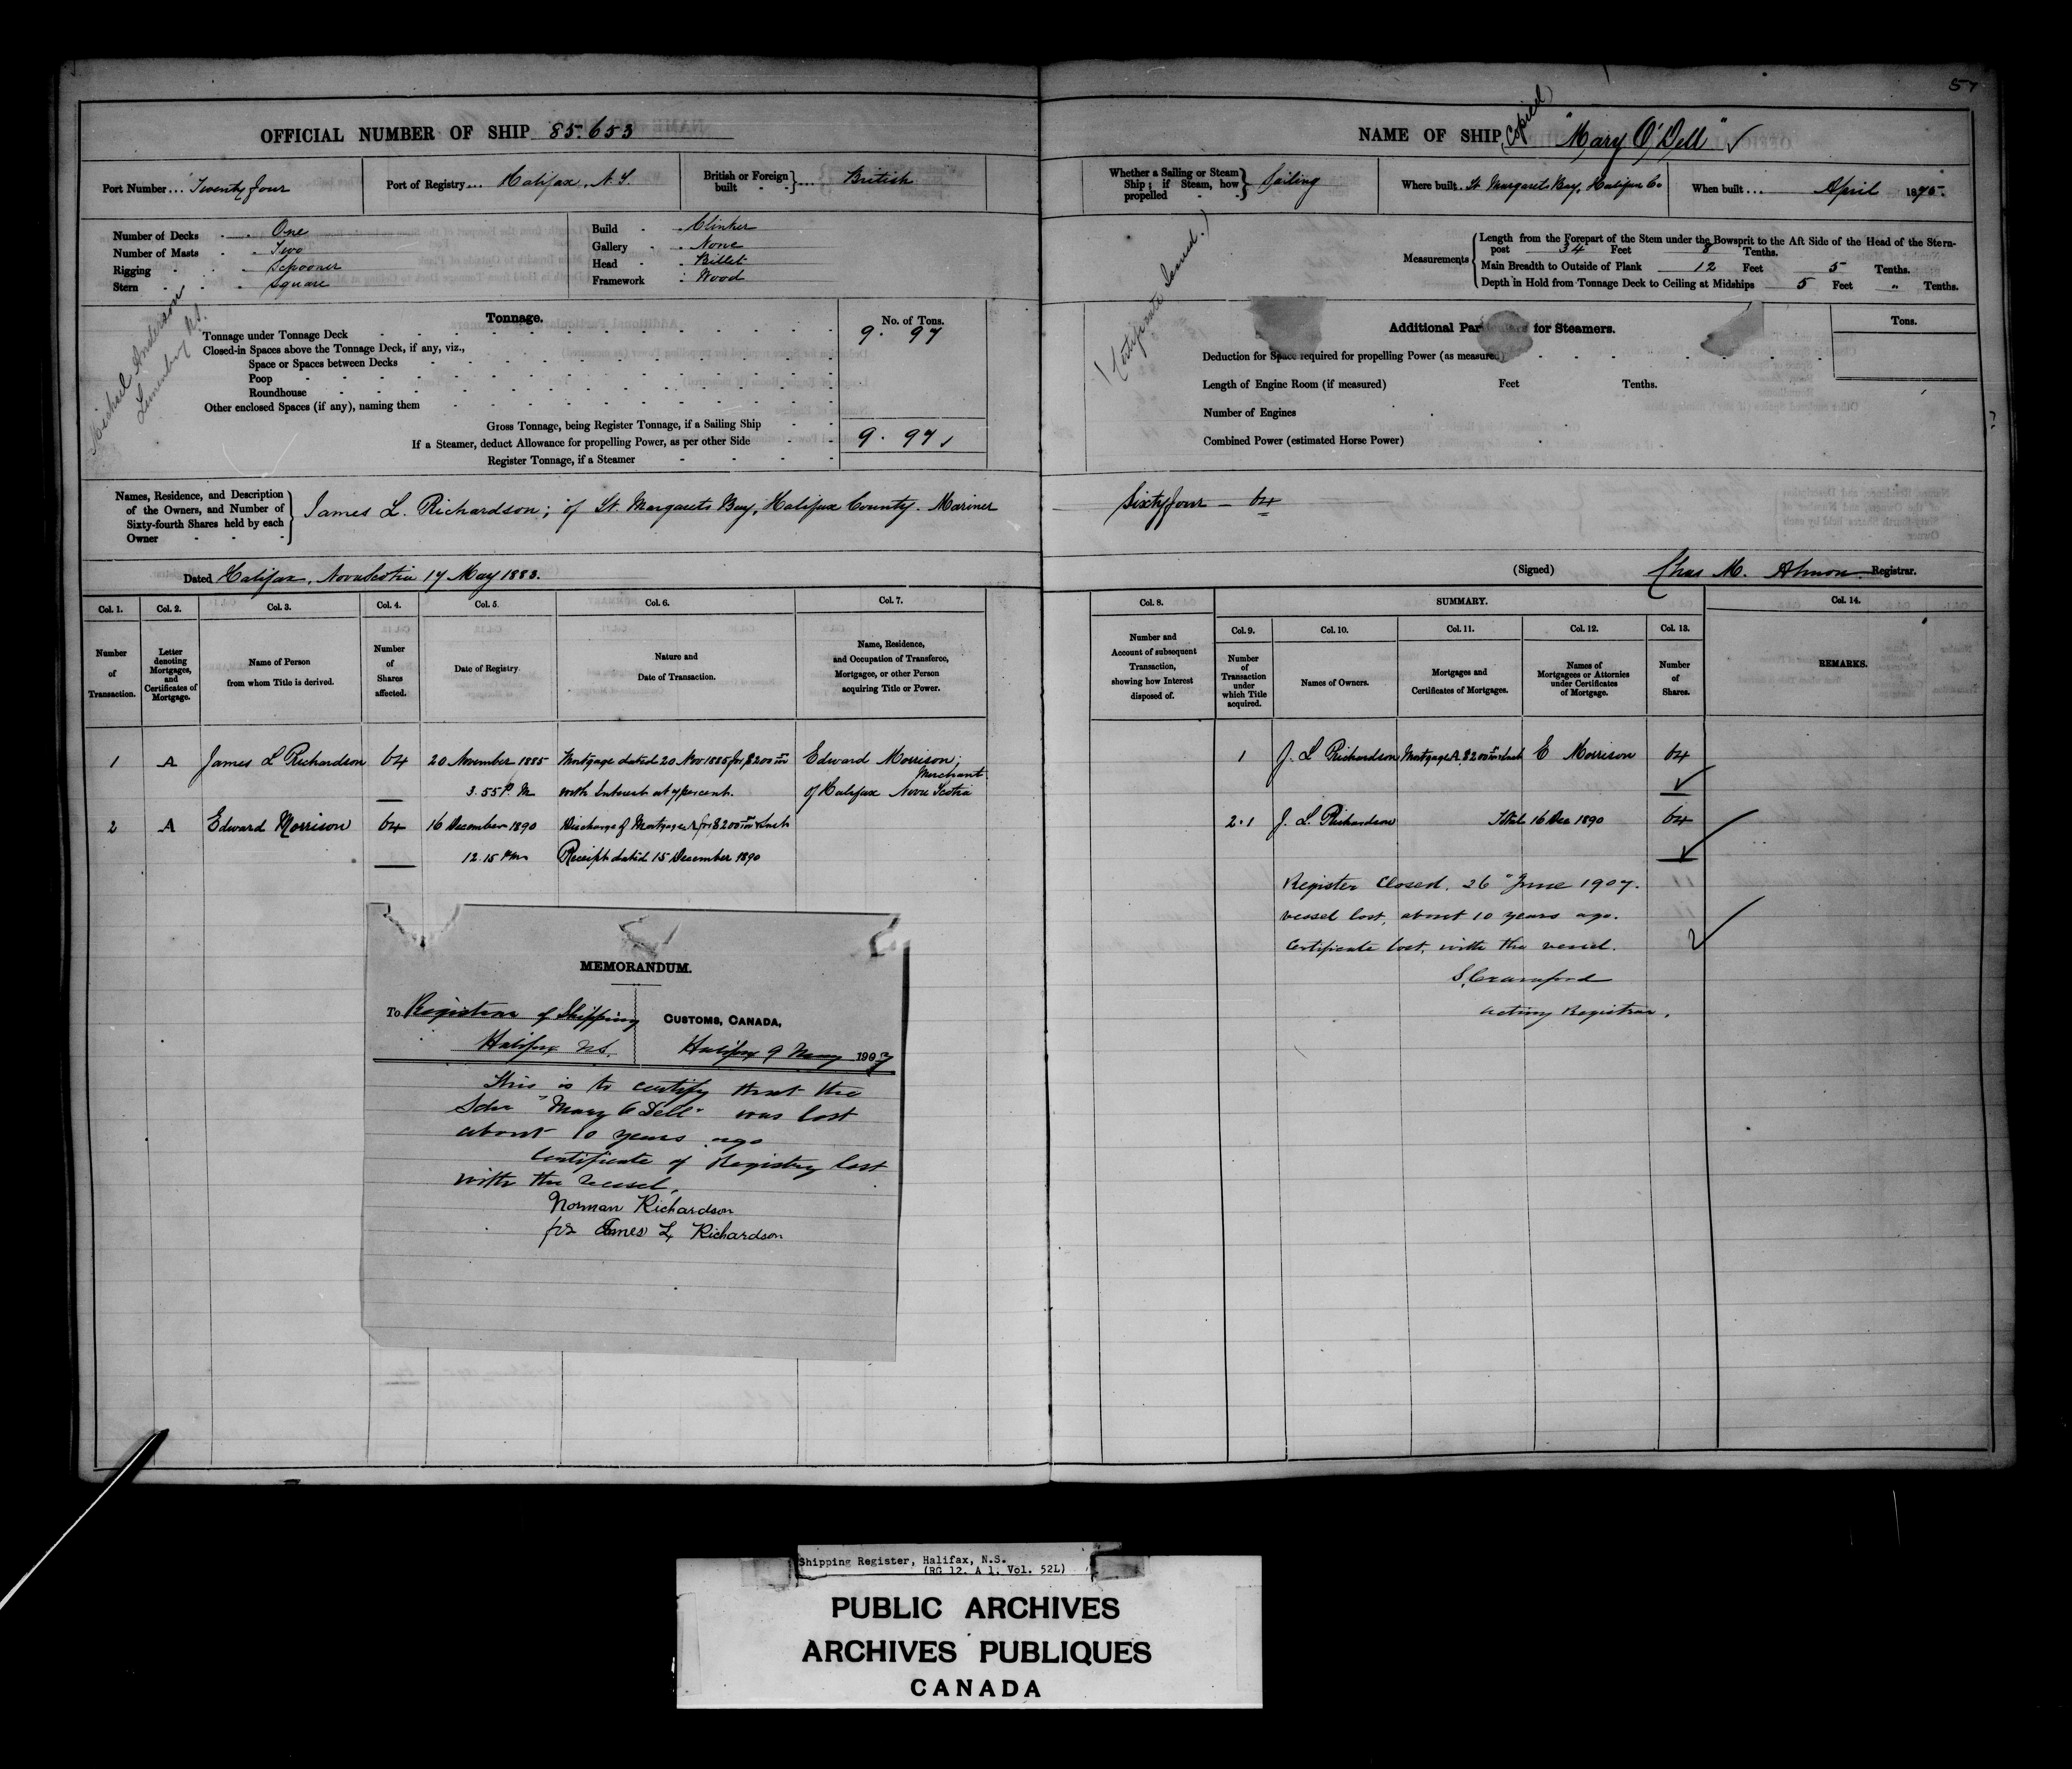 57
OFFICIAL NUMBER OF SHIP 85.653
Port Number... Twenty four
Port of Registry... Halifax, N.S.
British or Foreign built } ... British
Number of Decks One
Number of Masts Two
Rigging Schooner
Stern Square
Build Clinker
Gallery None
Head Billet
Framework Wood
Michael Anderson
Lunenburg N.S.
Tonnage.
No. of Tons.
Tonnage under Tonnage Deck 9.97
Closed-in Spaces above the Tonnage Deck, if any, viz.,
Space or Spaces between Decks
Poop
Roundhouse
Other enclosed Spaces (if any), naming them
Gross Tonnage, being Register Tonnage, if a Sailing Ship
If a Steamer, deduct Allowance for propelling Power, as per other Side 9.97
Register Tonnage, if a Steamer
Names, Residence, and Description
of the Owners, and Number of
Sixty-fourth Shares held by each
Owner
James L. Richardson; of St. Margarets Bay, Halifax County. Mariner
Dated Halifax, Nova Scotia 17 May 1883.
Col. 1. Col. 2. Col. 3. Col. 4. Col. 5. Col. 6. Col. 7.
Number of Transaction.
Letter denoting Mortgages, and Certificates of Mortgage.
Name of Person from whom Title is derived.
Number of Shares affected.
Date of Registry.
Nature and Date of Transaction.
Name, Residence, and Occupation of Transferee, Mortgagee, or other Person acquiring Title or Power.
1 A James L Richardson 64 20 November 1885 Mortgage dated 20 Nov 1885 for $200 Edward Morrison; Merchant
3.55 P.M with Interest at 7 per cent. of Halifax Nova Scotia
2 A Edward Morrison 64 16 December 1890 Discharge of Mortgage A for $200 & Int
12.15 PM Receipt dated 15 December 1890
MEMORANDUM.
To Registrar of Shipping
Halifax N.S.
CUSTOMS, CANADA,
Halifax 9 May 1907
This is to certify that the
Schr "Mary O Dell" was lost
about 10 years ago
Certificate of Registry lost
with the vessel.
Norman Richardson
for James L Richardson
NAME OF SHIP (Copied) "Mary O'Dell"
Whether a Sailing or Steam Ship; if Steam, how propelled } Sailing
Where built St. Margarets Bay, Halifax Co
When built... April 1875.
(Certificate Issued.)
Measurements
Length from the Forepart of the Stem under the Bowsprit to the Aft Side of the Head of the Stern-
post 34 Feet 8 Tenths.
Main Breadth to Outside of Plank 12 Feet 5 Tenths.
Depth in Hold from Tonnage Deck to Ceiling at Midships 5 Feet " Tenths.
Additional Particulars for Steamers.
Tons.
Deduction for Space required for propelling Power (as measured)
Length of Engine Room (if measured) Feet Tenths.
Number of Engines
Combined Power (estimated Horse Power)
Sixty four - 64
(Signed) Chas M. Almon Registrar.
Col. 8. SUMMARY. Col. 14.
Col. 9. Col. 10. Col. 11. Col. 12. Col. 13.
Number and Account of subsequent Transaction, showing how Interest disposed of.
Number of Transaction under which Title acquired.
Names of Owners.
Mortgages and Certificates of Mortgages.
Names of Mortgagees or Attornies under Certificates of Mortgage.
Number of Shares.
REMARKS.
1 J. L Richardson Mortgage A. $200 & Int E Morrison 64
2.1 J. L. Richardson 16 Dec 1890 64
Register Closed. 26 June 1907.
vessel lost, about 10 years ago.
Certificate lost, with the vessel.
S. Crawford
Acting Registrar.
Shipping Register, Halifax, N.S.
(RG 12. A 1. Vol. 52L)
PUBLIC ARCHIVES
ARCHIVES PUBLIQUES
CANADA